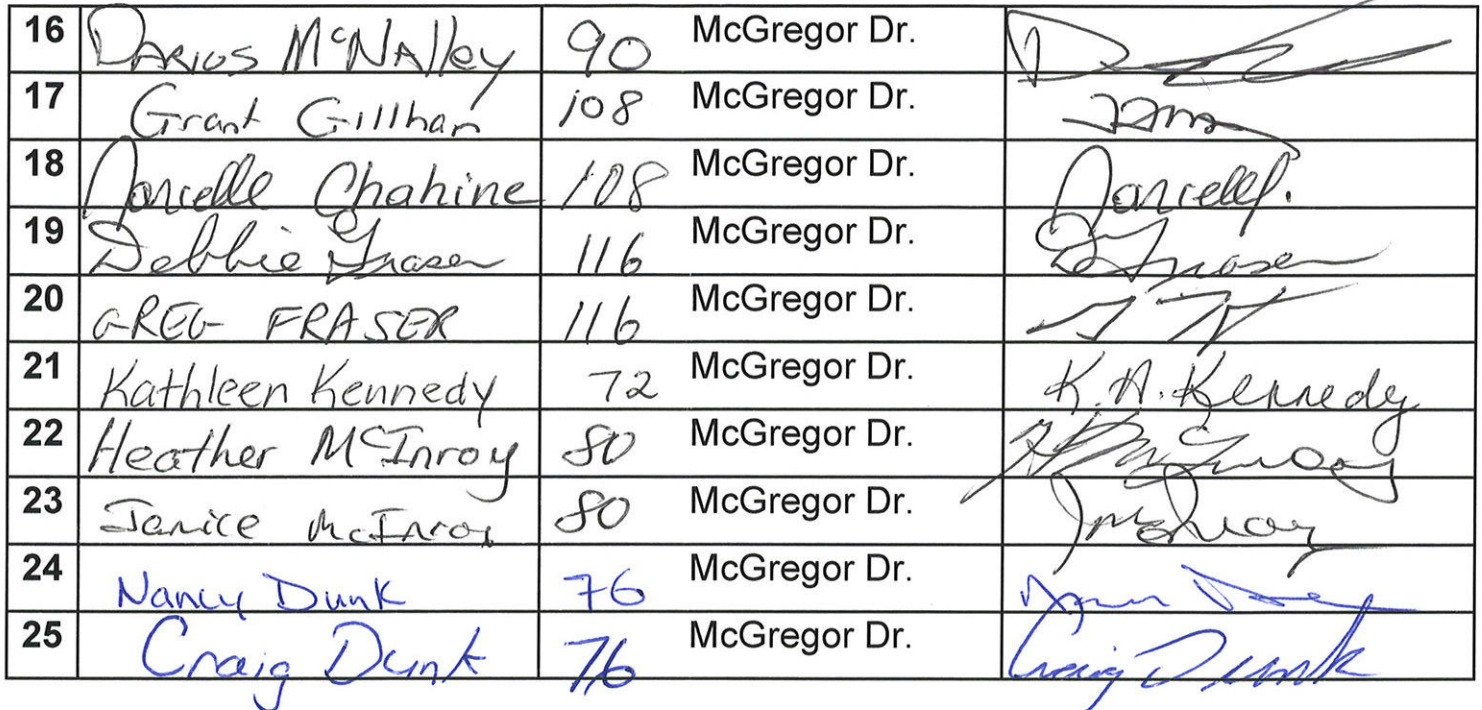 16 Darios McNalley 90 McGregor Dr.
17 Grant Gillhan 108 McGregor Dr.
18 Chahine 108 McGregor Dr.
19 Debbie Fraser 116 McGregor Dr. Fraser
20 GREG FRASER 116 McGregor Dr.
21 Kathleen Kennedy 72 McGregor Dr. K.A. Kennedy
22 Heather McInroy 80 McGregor Dr.
23 Janice McInroy 80 McGregor Dr.
24 Nancy Dunk 76 McGregor Dr.
25 Craig Dunk 76 McGregor Dr. Craig Dunk